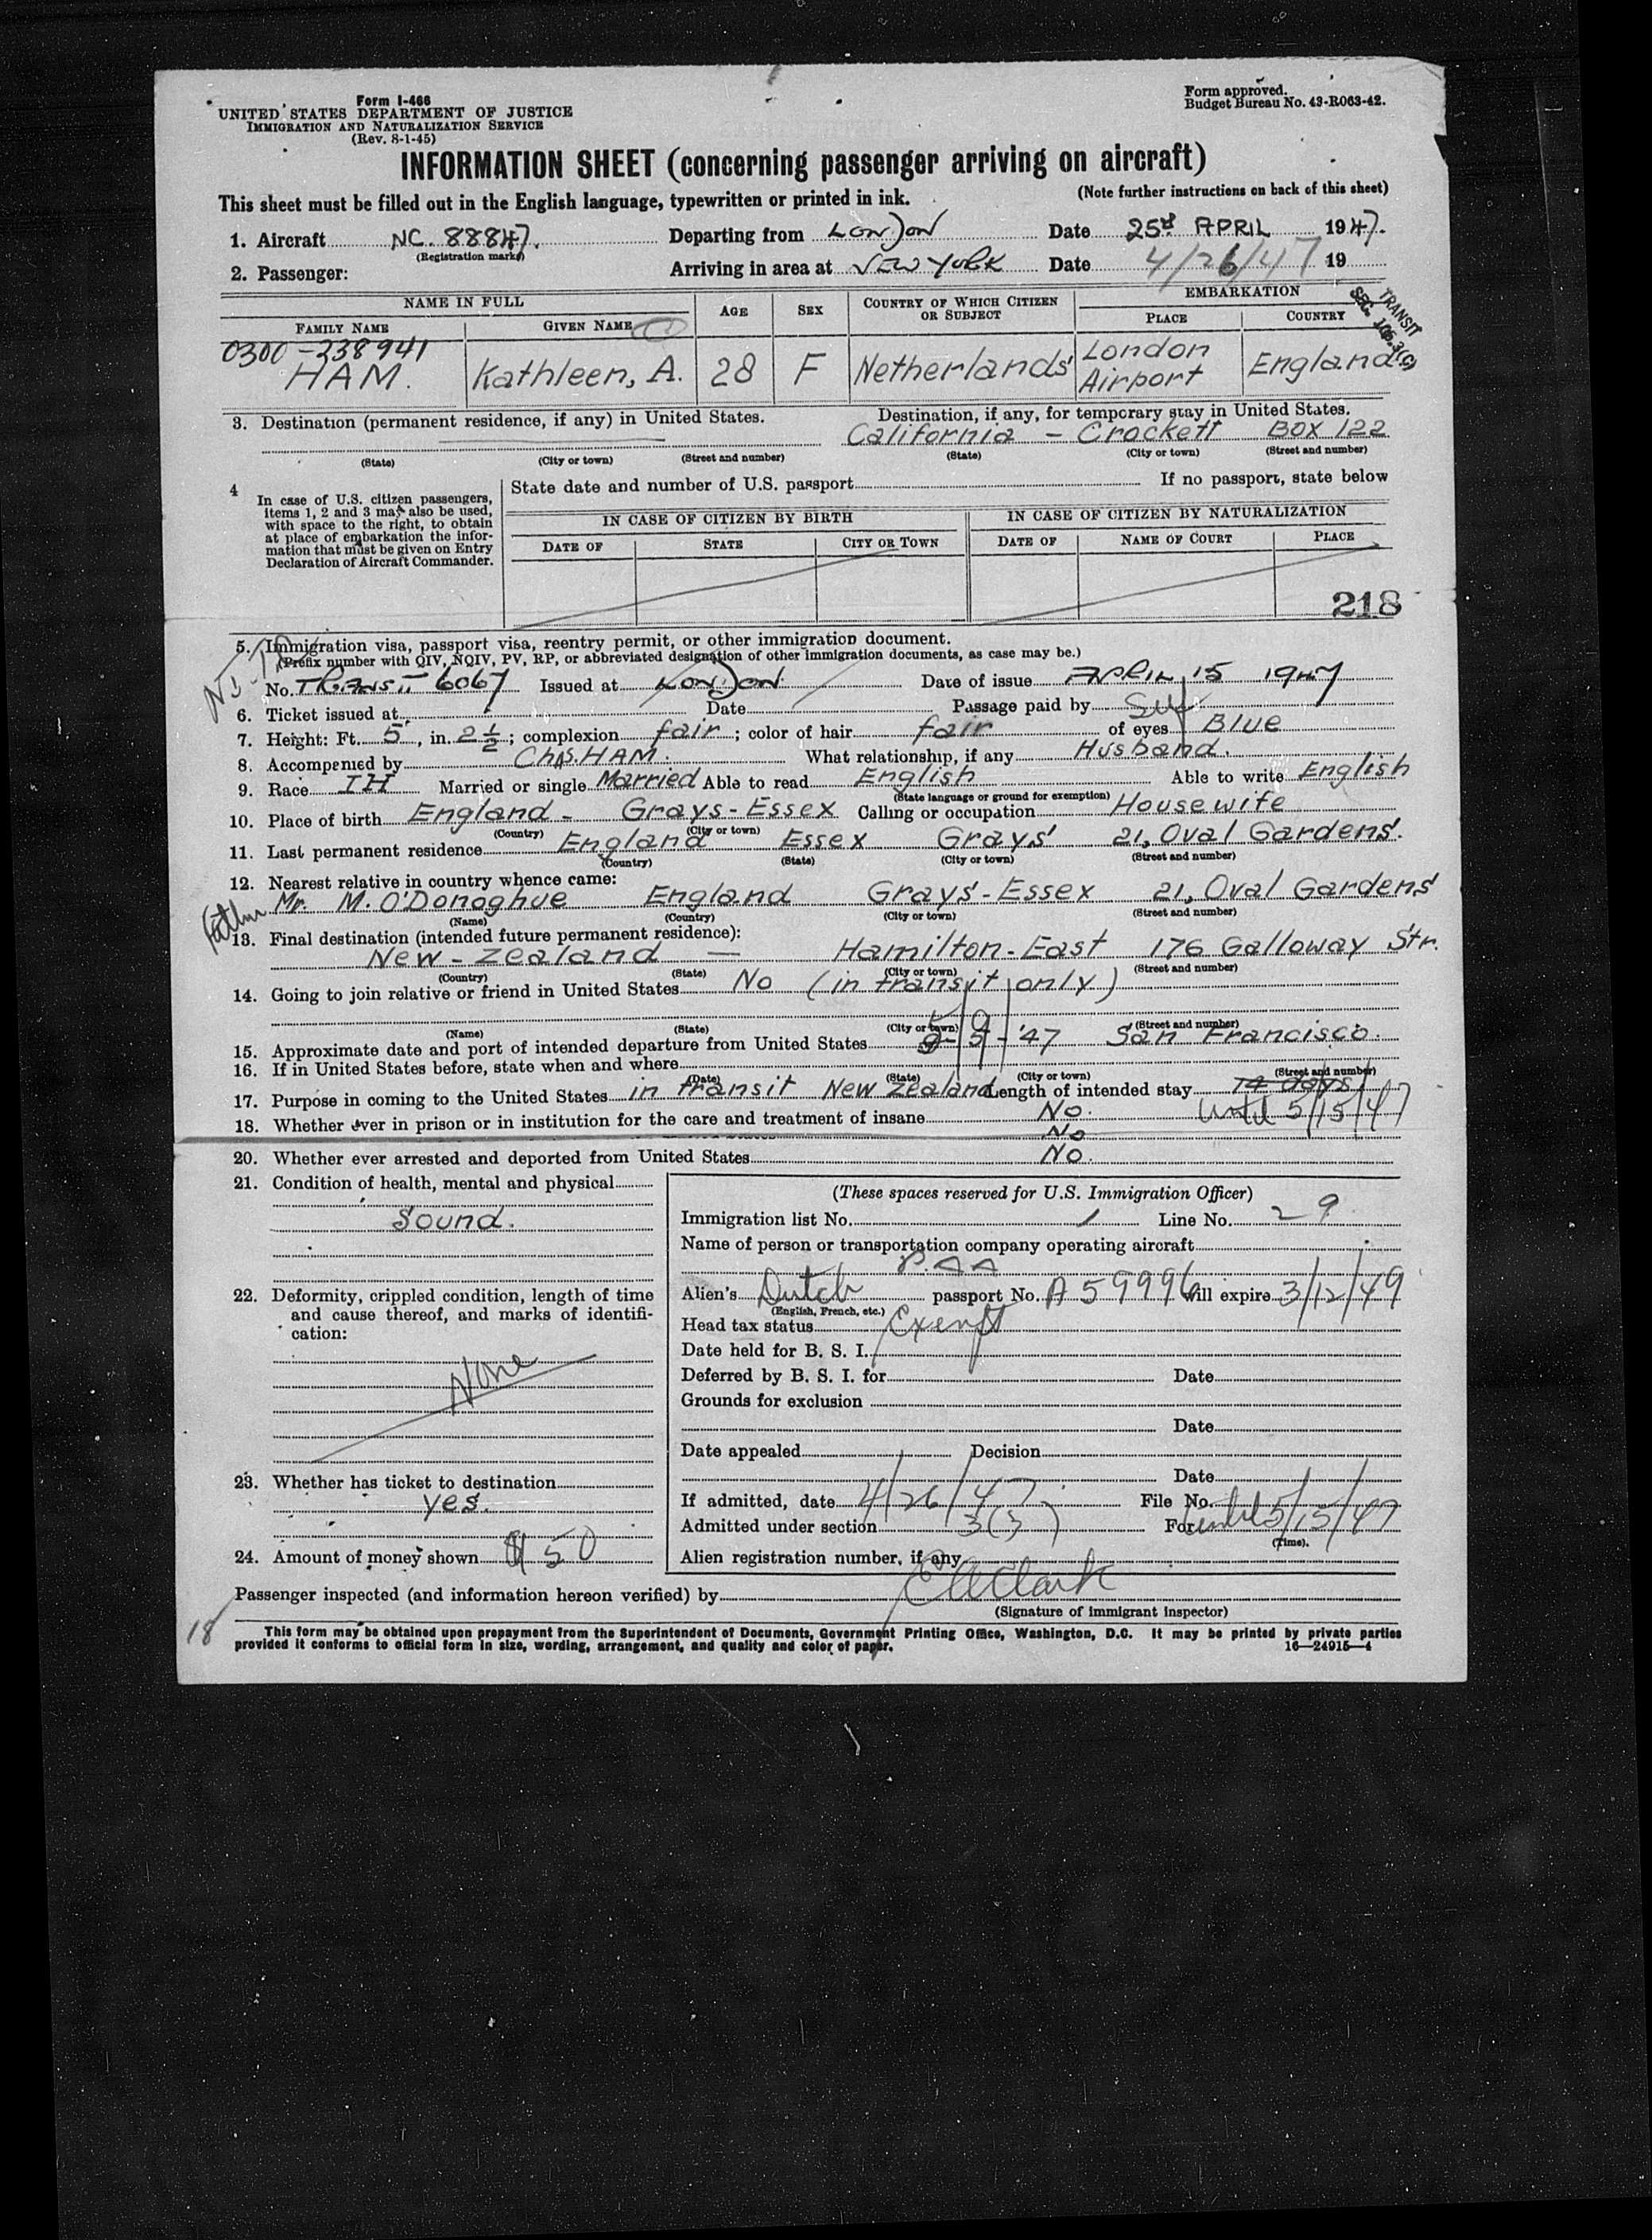 Form I-466
UNITED STATES DEPARTMENT OF JUSTICE
IMMIGRATION AND NATURALIZATION SERVICE
(Rev. 8-1-45)
Form approved.
Budget Bureau No. 43-R063-42.
INFORMATION SHEET (concerning passenger arriving on aircraft)
This sheet must be filled out in the English language, typewritten or printed in ink. (Note further instructions on back of this sheet)
1. Aircraft NC. 88847. Departing from LONDON Date 25th APRIL 1947.
(Registration marks)
2. Passenger: Arriving in area at NEW YORK Date 4/26/47 19
NAME IN FULL AGE SEX COUNTRY OF WHICH CITIZEN OR SUBJECT EMBARKATION
FAMILY NAME GIVEN NAME PLACE COUNTRY
TRANSIT
SEC. 106.3(c)
0300-338941
HAM. Kathleen, A. 28 F Netherlands London Airport England
3. Destination (permanent residence, if any) in United States. Destination, if any, for temporary stay in United States.
California - Crockett Box 122
(State) (City or town) (Street and number) (State) (City or town) (Street and number)
4 In case of U.S. citizen passengers, items 1, 2 and 3 may also be used, with space to the right, to obtain at place of embarkation the information that must be given on Entry Declaration of Aircraft Commander.
State date and number of U.S. passport If no passport, state below
IN CASE OF CITIZEN BY BIRTH IN CASE OF CITIZEN BY NATURALIZATION
DATE OF STATE CITY OR TOWN DATE OF NAME OF COURT PLACE
218
5. Immigration visa, passport visa, reentry permit, or other immigration document.
(Prefix number with QIV, NQIV, PV, RP, or abbreviated designation of other immigration documents, as case may be.)
No. TRANSIT 6067 Issued at LONDON Date of issue APRIL 15 1947
6. Ticket issued at Date Passage paid by Self
7. Height: Ft. 5, in. 2 1/2; complexion fair; color of hair fair of eyes Blue
8. Accompanied by Chas. HAM. What relationship, if any Husband.
9. Race IH Married or single Married Able to read English Able to write English
(State language or ground for exemption)
10. Place of birth England - Grays-Essex Calling or occupation Housewife
(Country) (City or town)
11. Last permanent residence England Essex Grays 21, Oval Gardens.
(Country) (State) (City or town) (Street and number)
12. Nearest relative in country whence came:
Father Mr. M. O'Donoghue England Grays-Essex 21, Oval Gardens
(Name) (Country) (City or town) (Street and number)
13. Final destination (intended future permanent residence):
New-Zealand — Hamilton-East 176 Galloway Str.
(Country) (State) (City or town) (Street and number)
14. Going to join relative or friend in United States No (in transit only)
(Name) (State) (City or town) (Street and number)
15. Approximate date and port of intended departure from United States 5/9 - '47 San Francisco.
16. If in United States before, state when and where
(Date) (State) (City or town) (Street and number)
17. Purpose in coming to the United States in transit New Zealand Length of intended stay 14 days
until 5/15/47
18. Whether ever in prison or in institution for the care and treatment of insane No.
No
20. Whether ever arrested and deported from United States No.
21. Condition of health, mental and physical
Sound.
22. Deformity, crippled condition, length of time and cause thereof, and marks of identification:
None
23. Whether has ticket to destination
yes.
24. Amount of money shown $ 50
(These spaces reserved for U.S. Immigration Officer)
Immigration list No. 1 Line No. 29
Name of person or transportation company operating aircraft
P.AA
Alien's Dutch passport No. A 59996 will expire 3/12/49
(English, French, etc.)
Head tax status Exempt
Date held for B. S. I.
Deferred by B. S. I. for Date
Grounds for exclusion
Date
Date appealed Decision
Date
If admitted, date 4/26/47 File No.
Admitted under section 3(3) For until 5/15/47
(Time).
Alien registration number, if any
Passenger inspected (and information hereon verified) by E A Clark
(Signature of immigrant inspector)
18
This form may be obtained upon prepayment from the Superintendent of Documents, Government Printing Office, Washington, D.C. It may be printed by private parties
provided it conforms to official form in size, wording, arrangement, and quality and color of paper. 16—24915-4